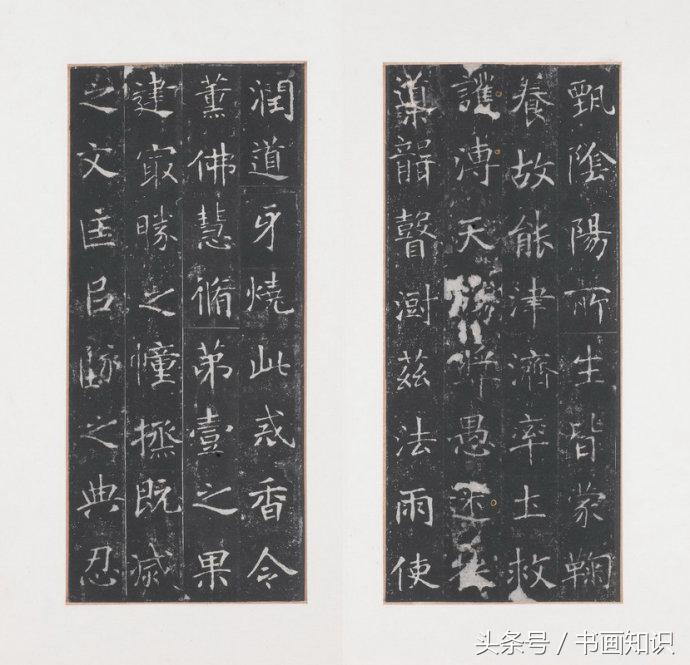 甄陰陽所生皆蒙鞠
養故能津濟率土救
護溥天愚迷
瞽澍茲法雨使
潤道牙燒此戒香令
薰佛慧脩第壹之果
建冣勝之幢拯既滅
之文匡已墜之典忍
头条号 / 书画知识